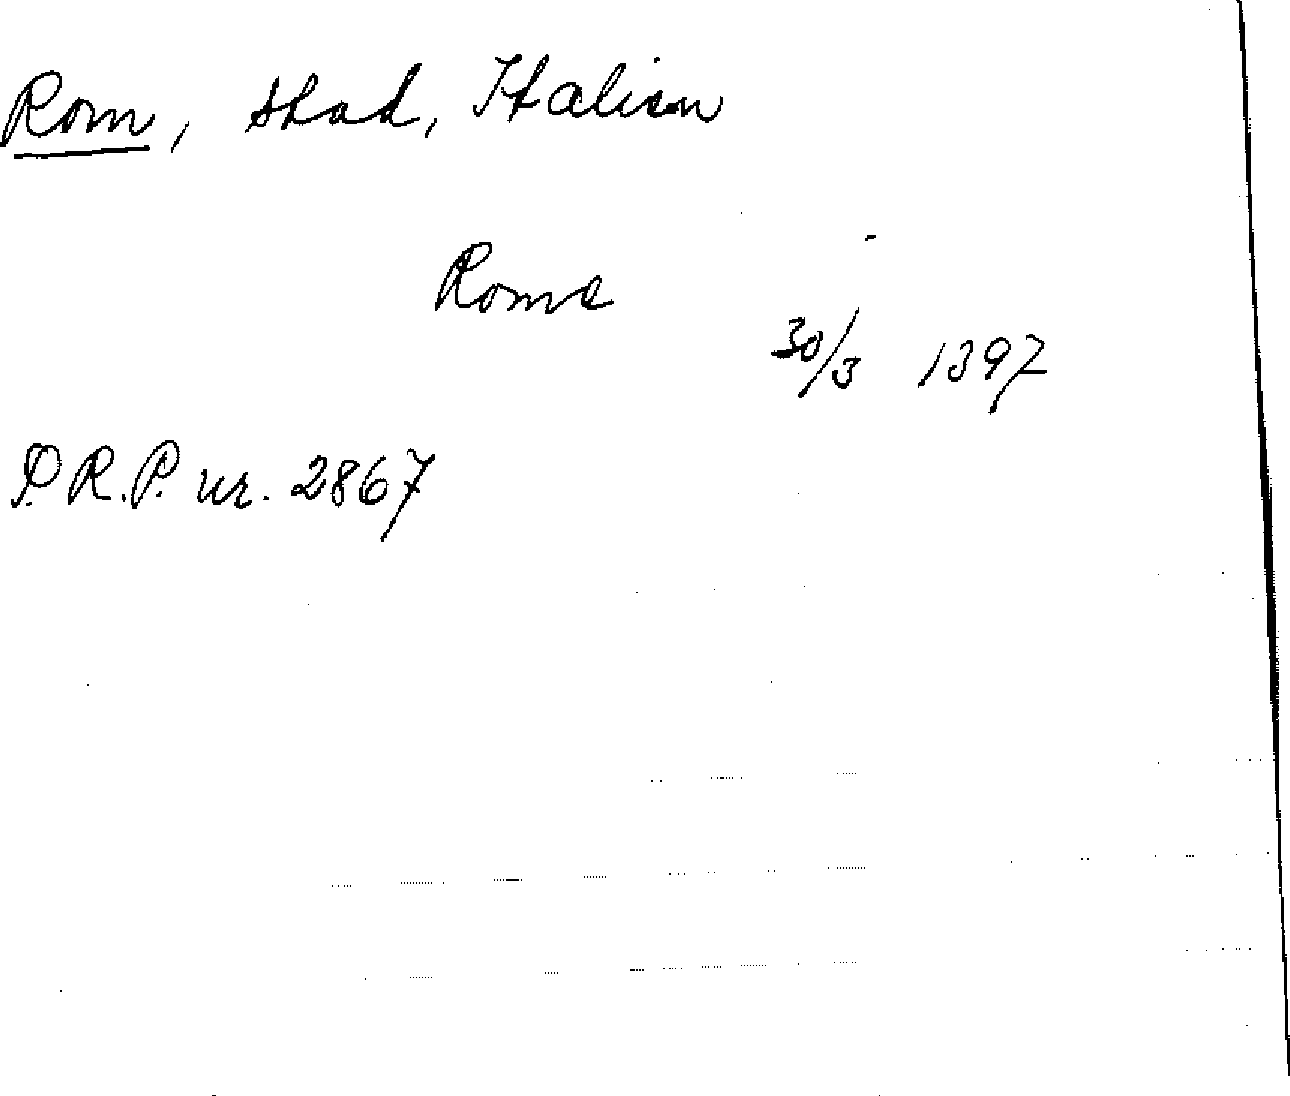 Rom, stad, Italien
Rome
30/3 1397
P.R.P. nr. 2867